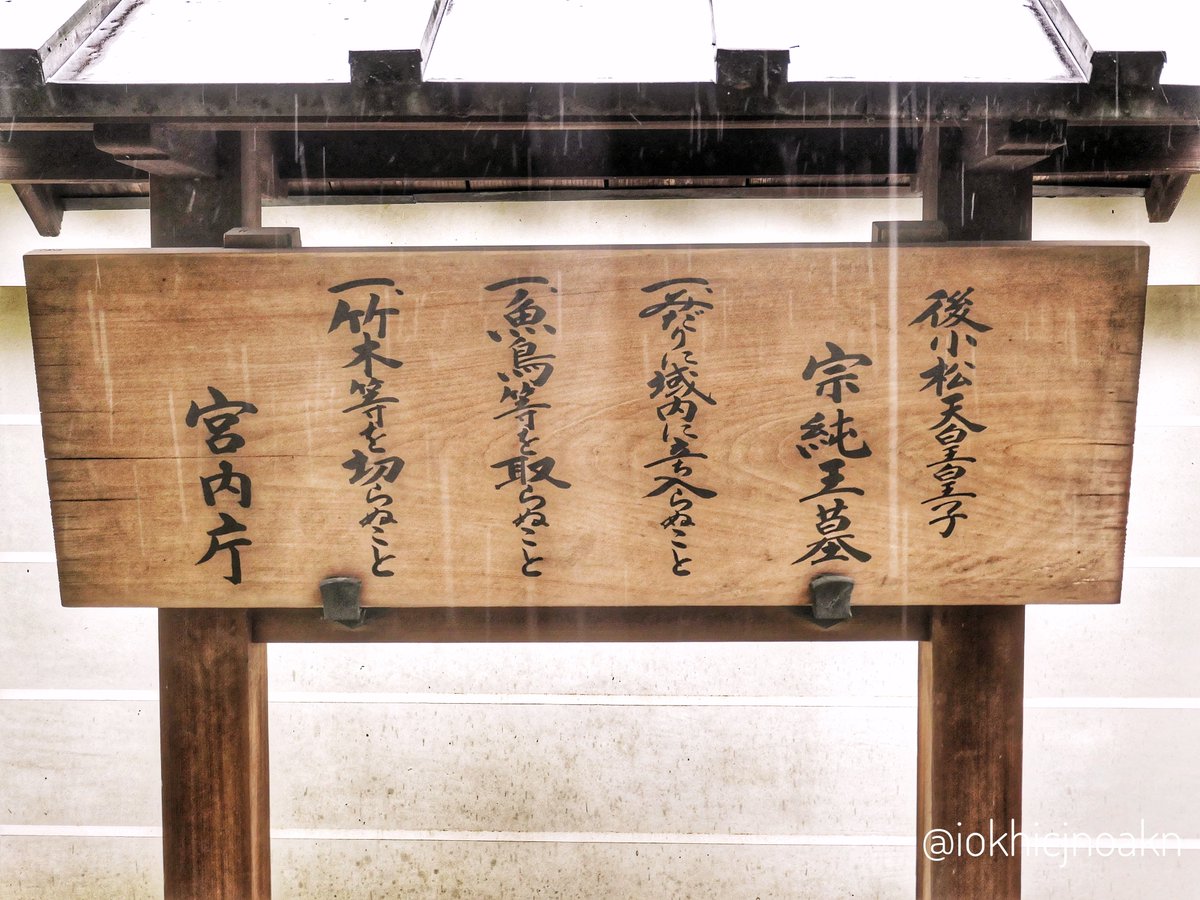 後小松天皇皇子
宗純王墓
一、みだりに域内に立ち入らぬこと
一、魚鳥等を取らぬこと
一、竹木等を切らぬこと
宮内庁
@iokhicjnoakn